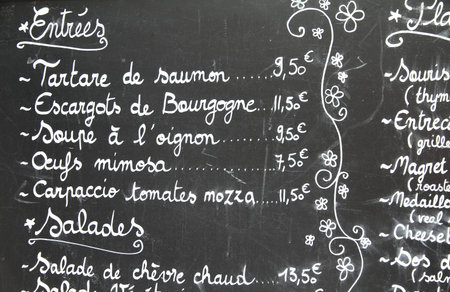 *Entrées
~Tartare de saumon.....9,50€
~Escargots de Bourgogne...11,50€
~Soupe à l'oignon.........9,50€
~Œufs mimosa..............7,50€
~Carpaccio tomates mozza..11,50€
*Salades
~Salade de chèvre chaud....13,50€
~Salade
*Pla
~Souris
(thym
~Entrec
(grille
~Magret
(roaste
~Medaillo
(veal
~Cheeseb
~Dos d